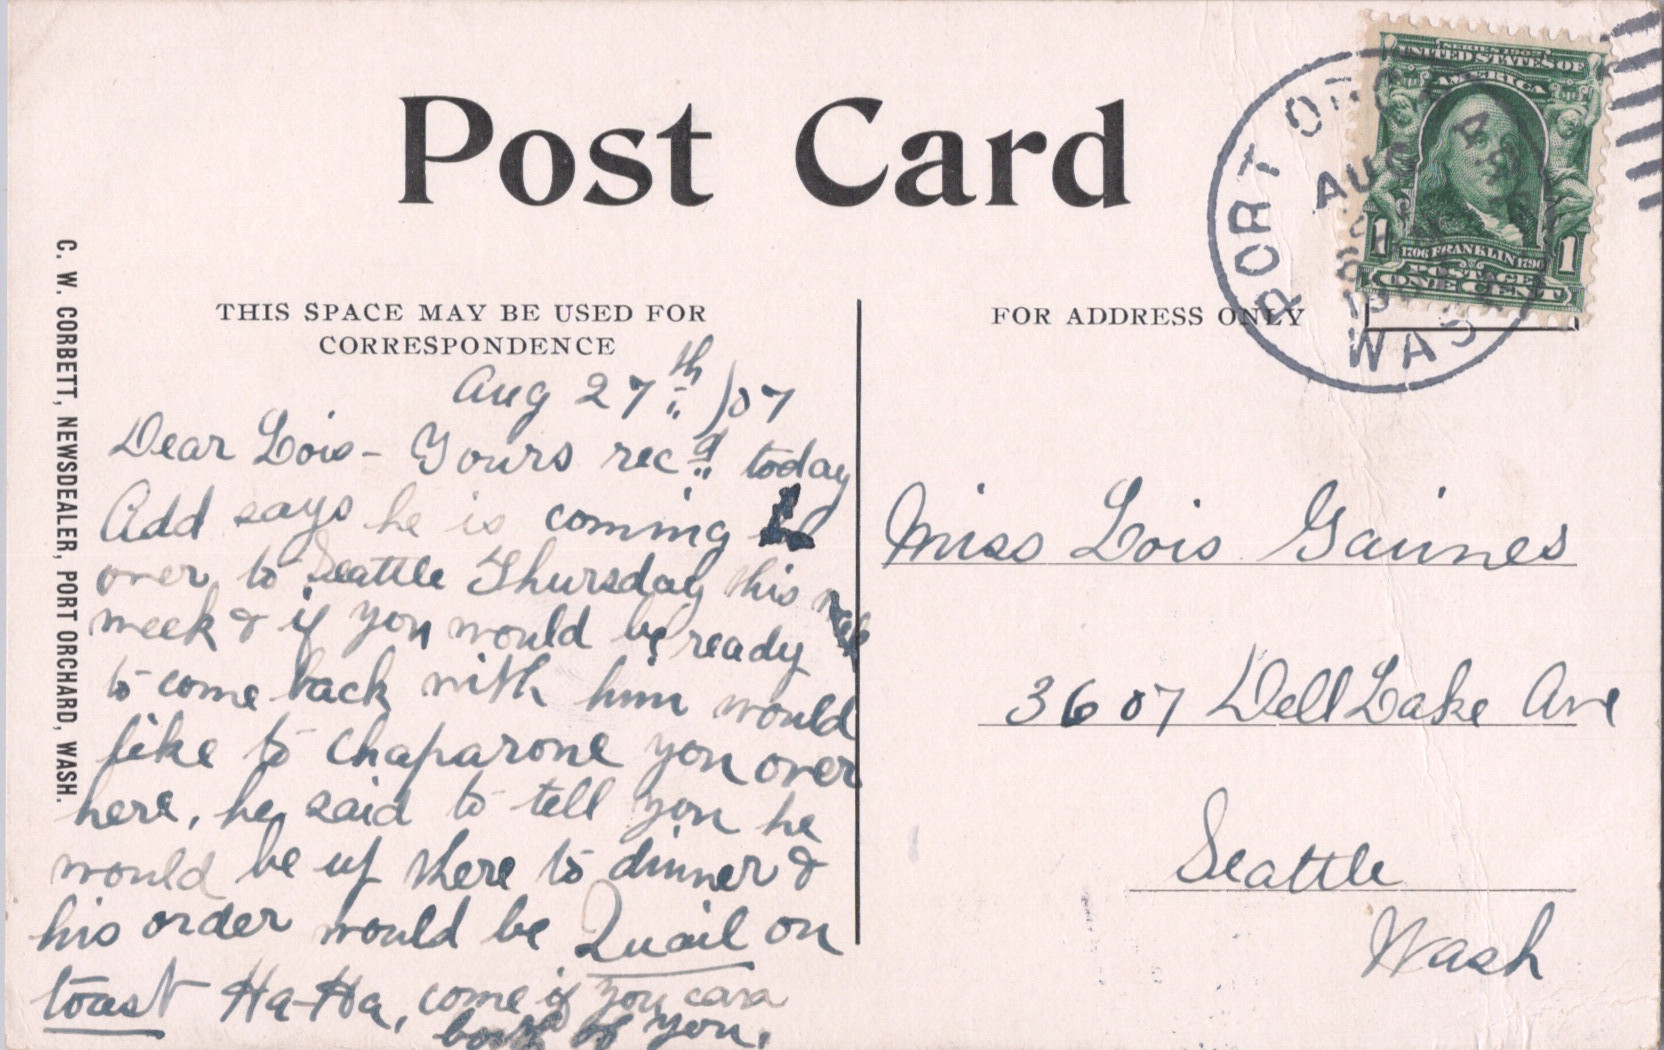 Post Card
C. W. CORBETT, NEWSDEALER, PORT ORCHARD, WASH.
THIS SPACE MAY BE USED FOR
CORRESPONDENCE
FOR ADDRESS ONLY
SERIES 1902
UNITED STATES OF
AMERICA
1 1
1706 FRANKLIN 1790
POSTAGE
ONE CENT
PORT ORC
AUG
WAS
Aug 27th /07
Dear Lois - Yours recd today
Add says he is coming
over to Seattle Thursday this
week & if you would be ready
to come back with him would
like to chaparone you over
here, he said to tell you he
would be up there to dinner &
his order would be Quail on
toast Ha-Ha, come if you
of you.
Miss Lois Gaines
3607 Dell Lake Ave
Seattle
Wash